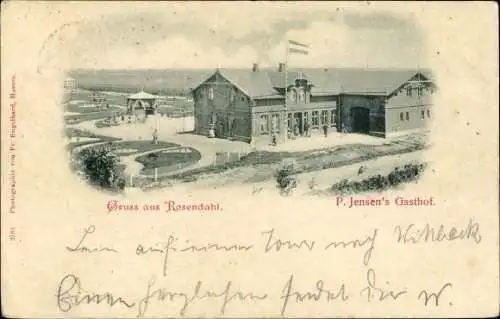 Gruss aus Rosendahl.
P. Jensen's Gasthof.
Photographie von Fr. Engelhard, Husum.
auf einer Tour nach Wittbek
Einen herzlichen sendet dir